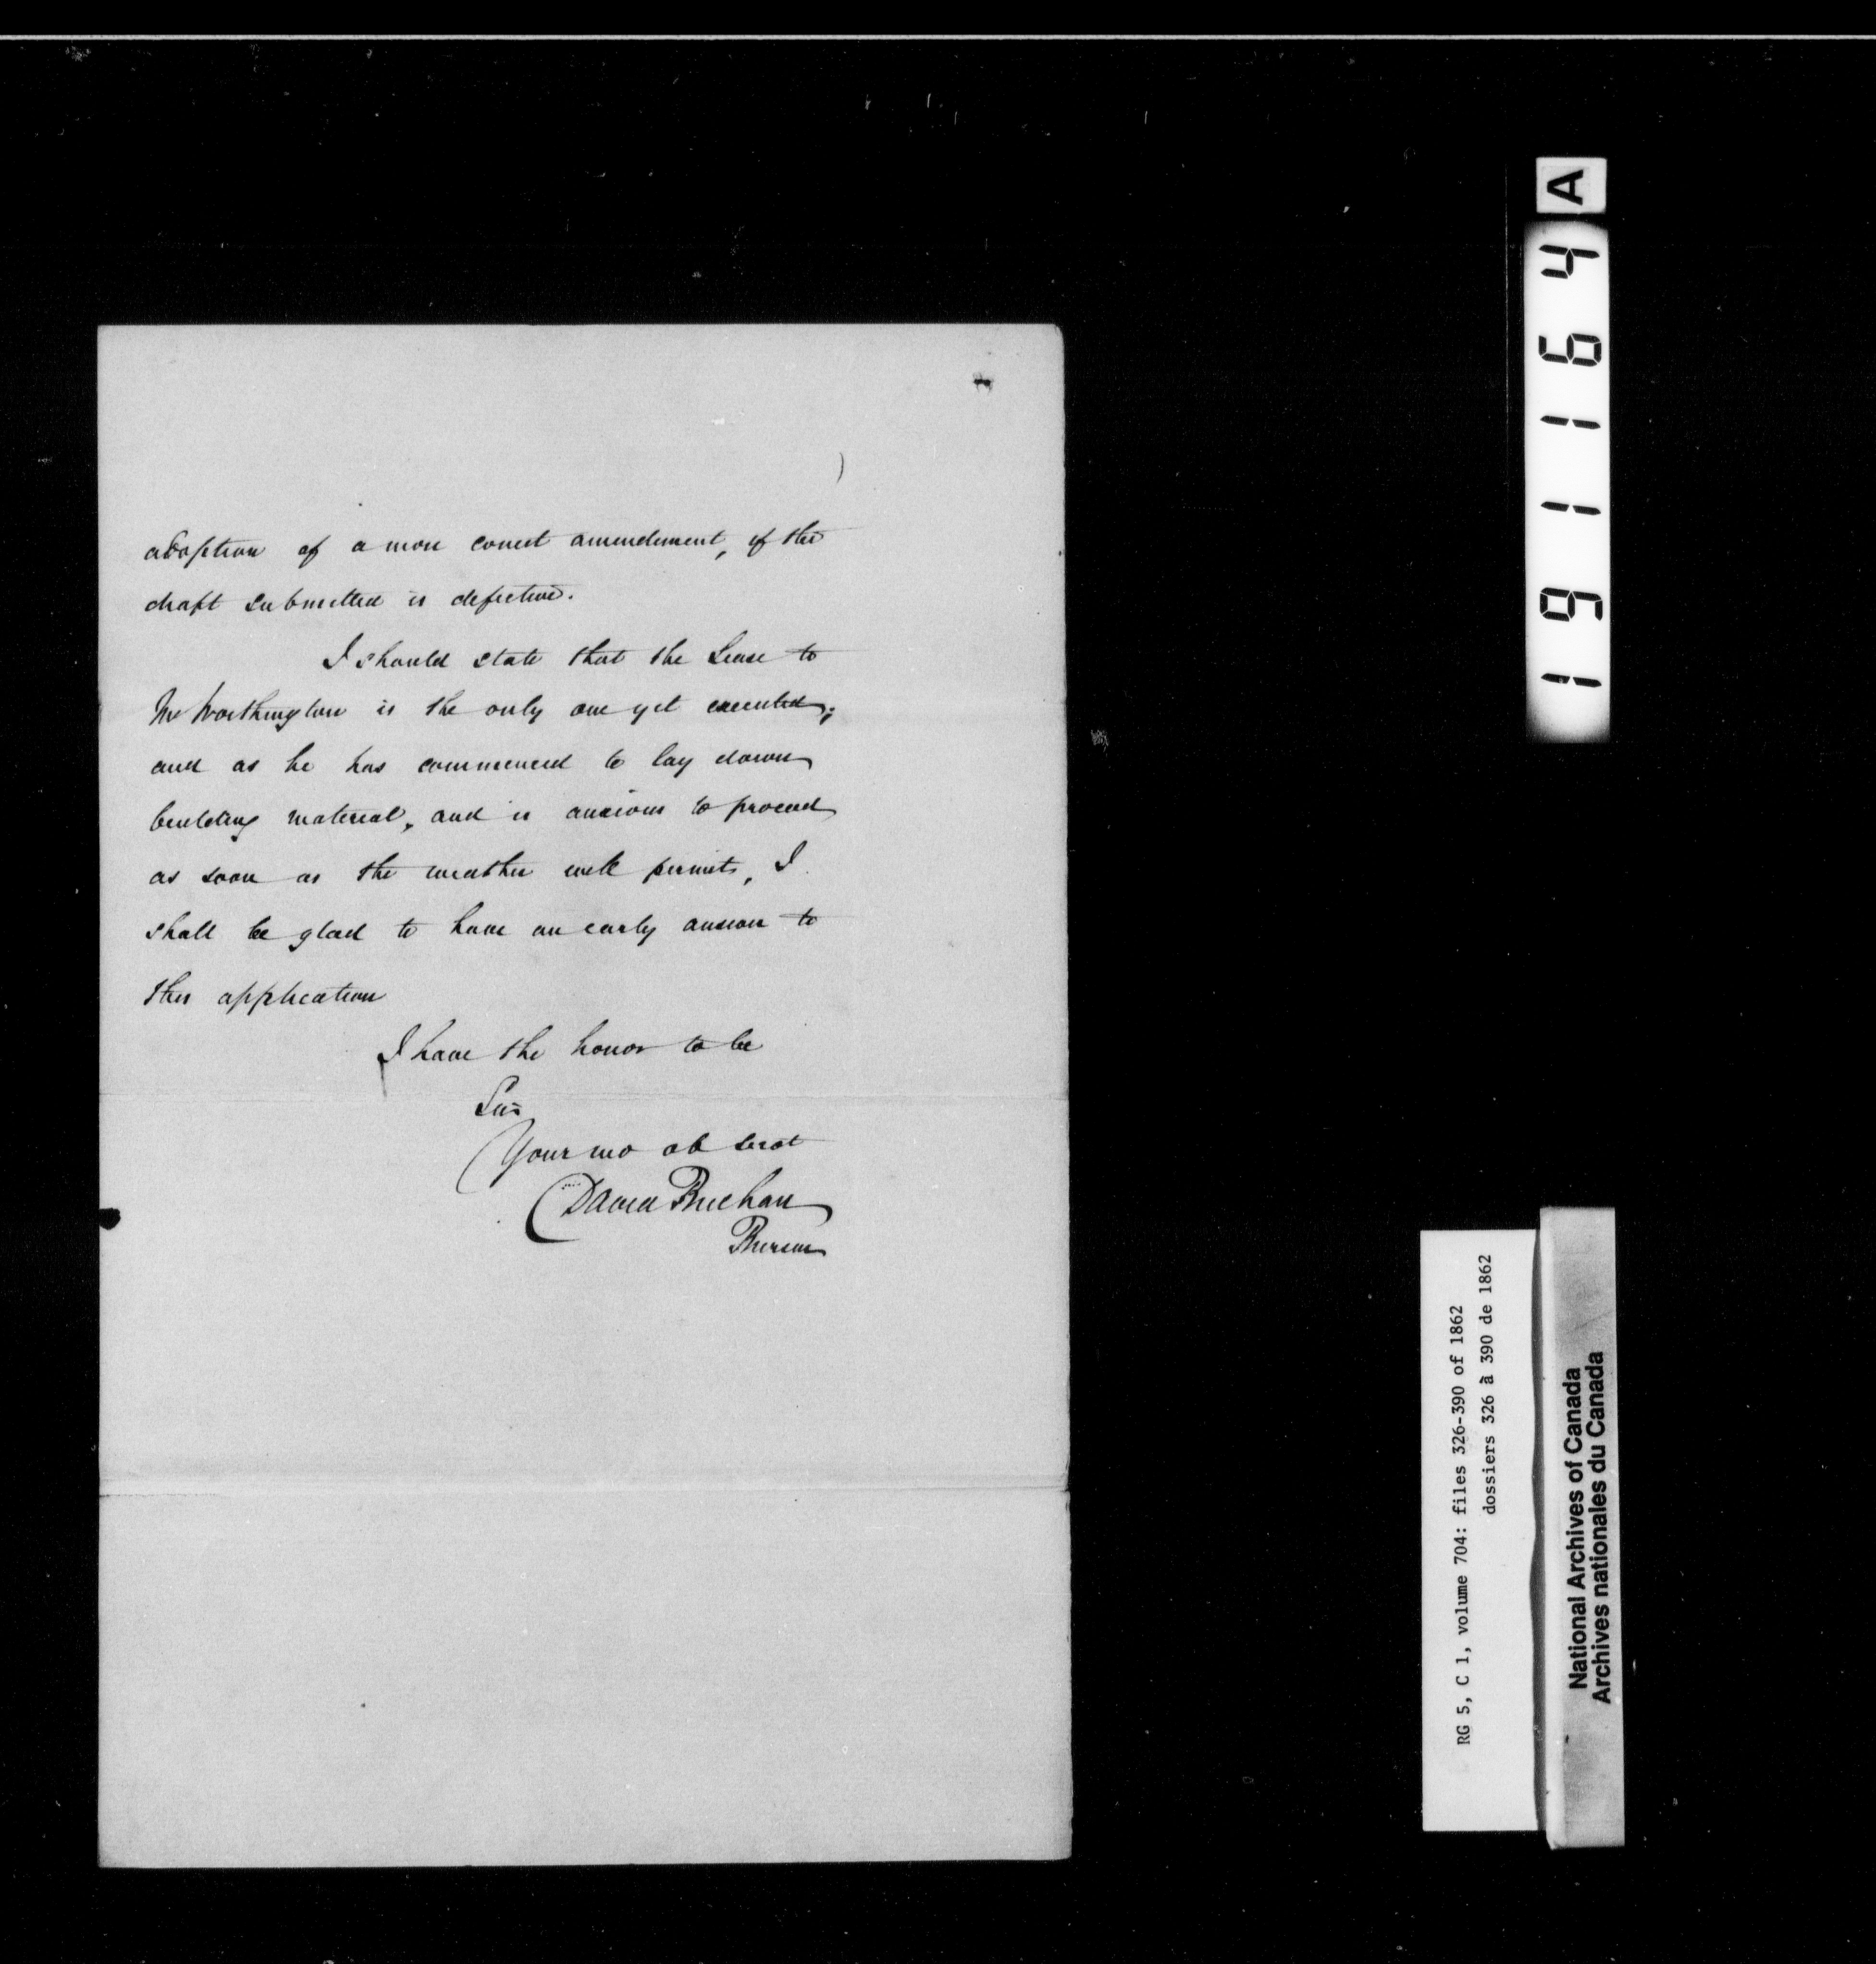 adoption of a more correct amendment, if the
draft submitted is defective.
I should state that the Lease to
Mr Worthington is the only one yet executed;
and as he has commenced to lay down
building material, and is anxious to proceed
as soon as the weather will permit, I
shall be glad to have an early answer to
this application
I have the honor to be
Sir
Your mo ob servt
David Buchan
Bursar
A
191164
RG 5, C 1, volume 704: files 326-390 of 1862
dossiers 326 à 390 de 1862
National Archives of Canada
Archives nationales du Canada